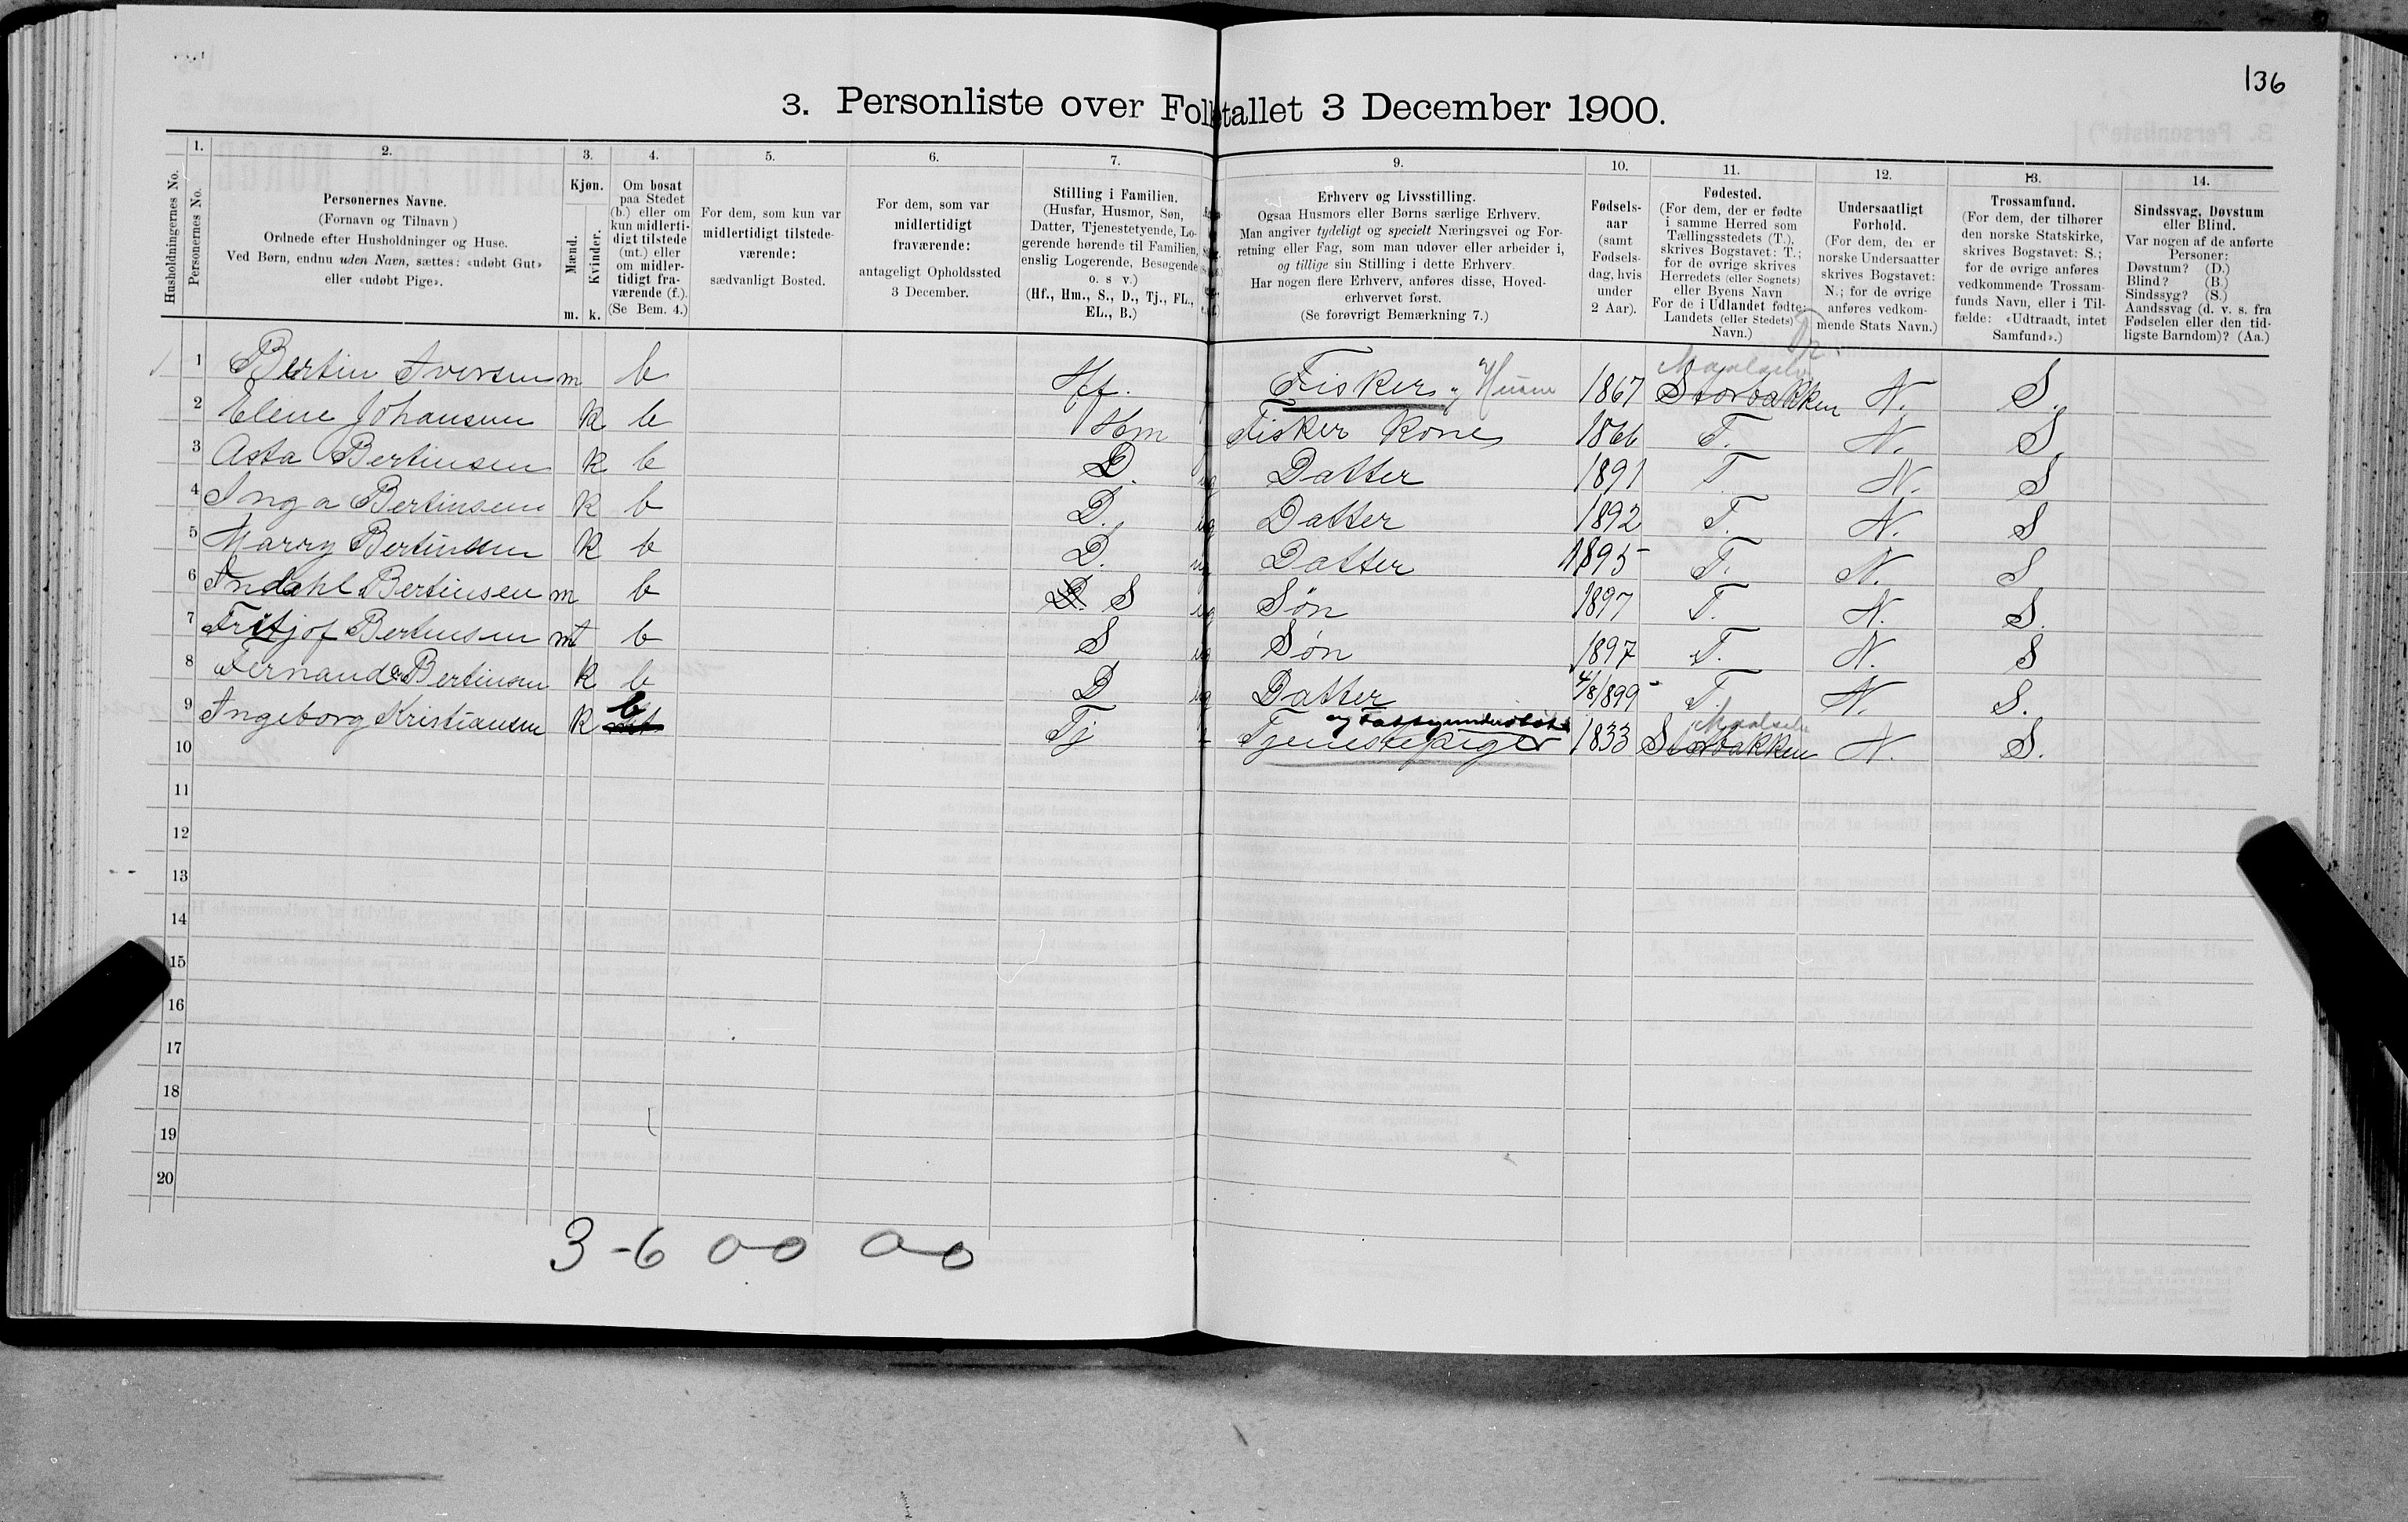 136
3. Personliste over Folketallet 3 December 1900.
1. 2. 3. 4. 5. 6. 7. 9. 10. 11. 12. 13. 14.
Husholdningernes No.
Personernes No.
Personernes Navne.
(Fornavn og Tilnavn)
Ordnede efter Husholdninger og Huse.
Ved Børn, endnu uden Navn, sættes: «udøbt Gut»
eller «udøbt Pige».
Kjøn.
Mænd.
Kvinder.
m. k.
Om bosat
paa Stedet
(b.) eller om
kun midlerti-
digt tilstede
(mt.) eller
om midler-
tidigt fra-
værende (f.).
(Se Bem. 4.)
For dem, som kun var
midlertidigt tilstede-
værende:
sædvanligt Bosted.
For dem, som var
midlertidigt
fraværende:
antageligt Opholdssted
3 December.
Stilling i Familien.
(Husfar, Husmor, Søn,
Datter, Tjenestetyende, Lo-
gerende hørende til Familien,
enslig Logerende, Besøgende
o. s v.)
(Hf., Hm., S., D., Tj., FL.,
EL., B.)
Erhverv og Livsstilling.
Ogsaa Husmors eller Børns særlige Erhverv.
Man angiver tydeligt og specielt Næringsvei og For-
retning eller Fag, som man udøver eller arbeider i,
og tillige sin Stilling i dette Erhverv.
Har nogen flere Erhverv, anføres disse, Hoved-
erhvervet først.
(Se forøvrigt Bemærkning 7.)
Fødsels-
aar
(samt
Fødsels-
dag, hvis
under
2 Aar).
Fødested.
(For dem, der er fødte
i samme Herred som
Tællingsstedets (T.),
skrives Bogstavet: T.;
for de øvrige skrives
Herredets (eller Sognets)
eller Byens Navn
For de i Udlandet fødte:
Landets (eller Stedets)
Navn.)
Undersaatligt
Forhold.
(For dem, der er
norske Undersaatter
skrives Bogstavet:
N.; for de øvrige
anføres vedkom-
mende Stats Navn.)
Trossamfund.
(For dem, der tilhører
den norske Statskirke,
skrives Bogstavet: S.;
for de øvrige anføres
vedkommende Trossam-
funds Navn, eller i Til-
fælde: «Udtraadt, intet
Samfund».)
Sindssvag, Døvstum
eller Blind.
Var nogen af de anførte
Personer:
Døvstum? (D.)
Blind? (B.)
Sindssyg? (S.)
Aandssvag (d. v. s. fra
Fødselen eller den tid-
ligste Barndom)? (Aa.)
1 Bertin Iversen m b Hf. Fisker og 1867 Maalselv Storbakken N. S.
2 Eline Johansen k b Hm Fisker Kone 1866 T. N. S.
3 Asta Bertinsen k b D. ug Datter 1891 T N. S
4 Inga Bertinsen k b D. ug Datter 1892 T. N. S
5 Marry Bertinsen k b D. ug Datter 1895 T. N. S
6 Indahl Bertinsen m b D. S ug Søn 1897 T. N. S.
7 Fritjof Bertinsen m b S ug Søn 1897 T. N. S
8 Fernanda Bertinsen k b D ug Datter 4/8 1899 T. N. S.
9 Ingeborg Kristiansen k mt b Tj Tjenestepiger og Fattigunderstøt 1833 Maalselv Storbakken N. S.
10
11
12
13
14
15
16
17
18
19
20
3-6 0-0 0-0